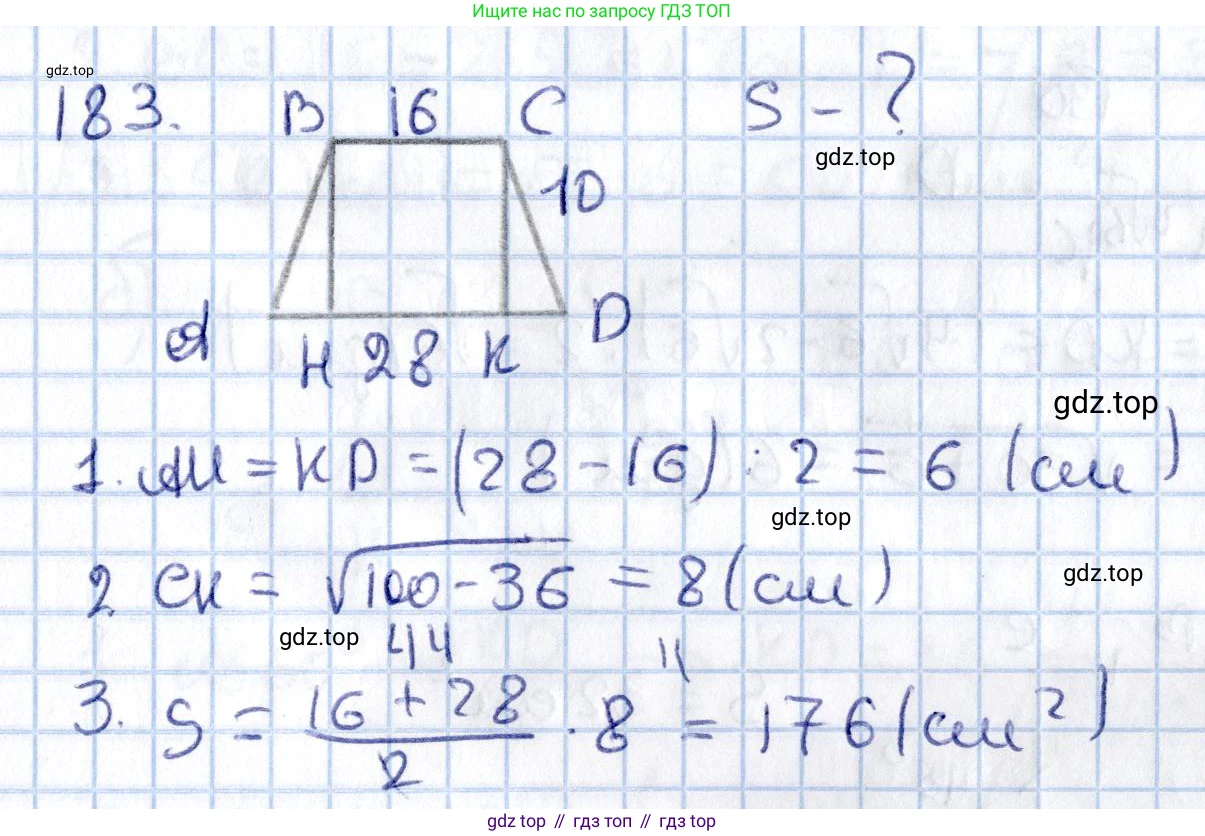 Ищите нас по запросу ГДЗ ТОП
gdz.top
183. B 16 C S - ?
gdz.top
10
A H 28 K D
gdz.top
1. AH = KD = (28 - 16) : 2 = 6 (см)
gdz.top
2 CK = √100 - 36 = 8 (см)
gdz.top
gdz.top
44
3. S = 16 + 28 / 2 · 8 = 176 (см²)
gdz.top // гдз.топ // гдз top